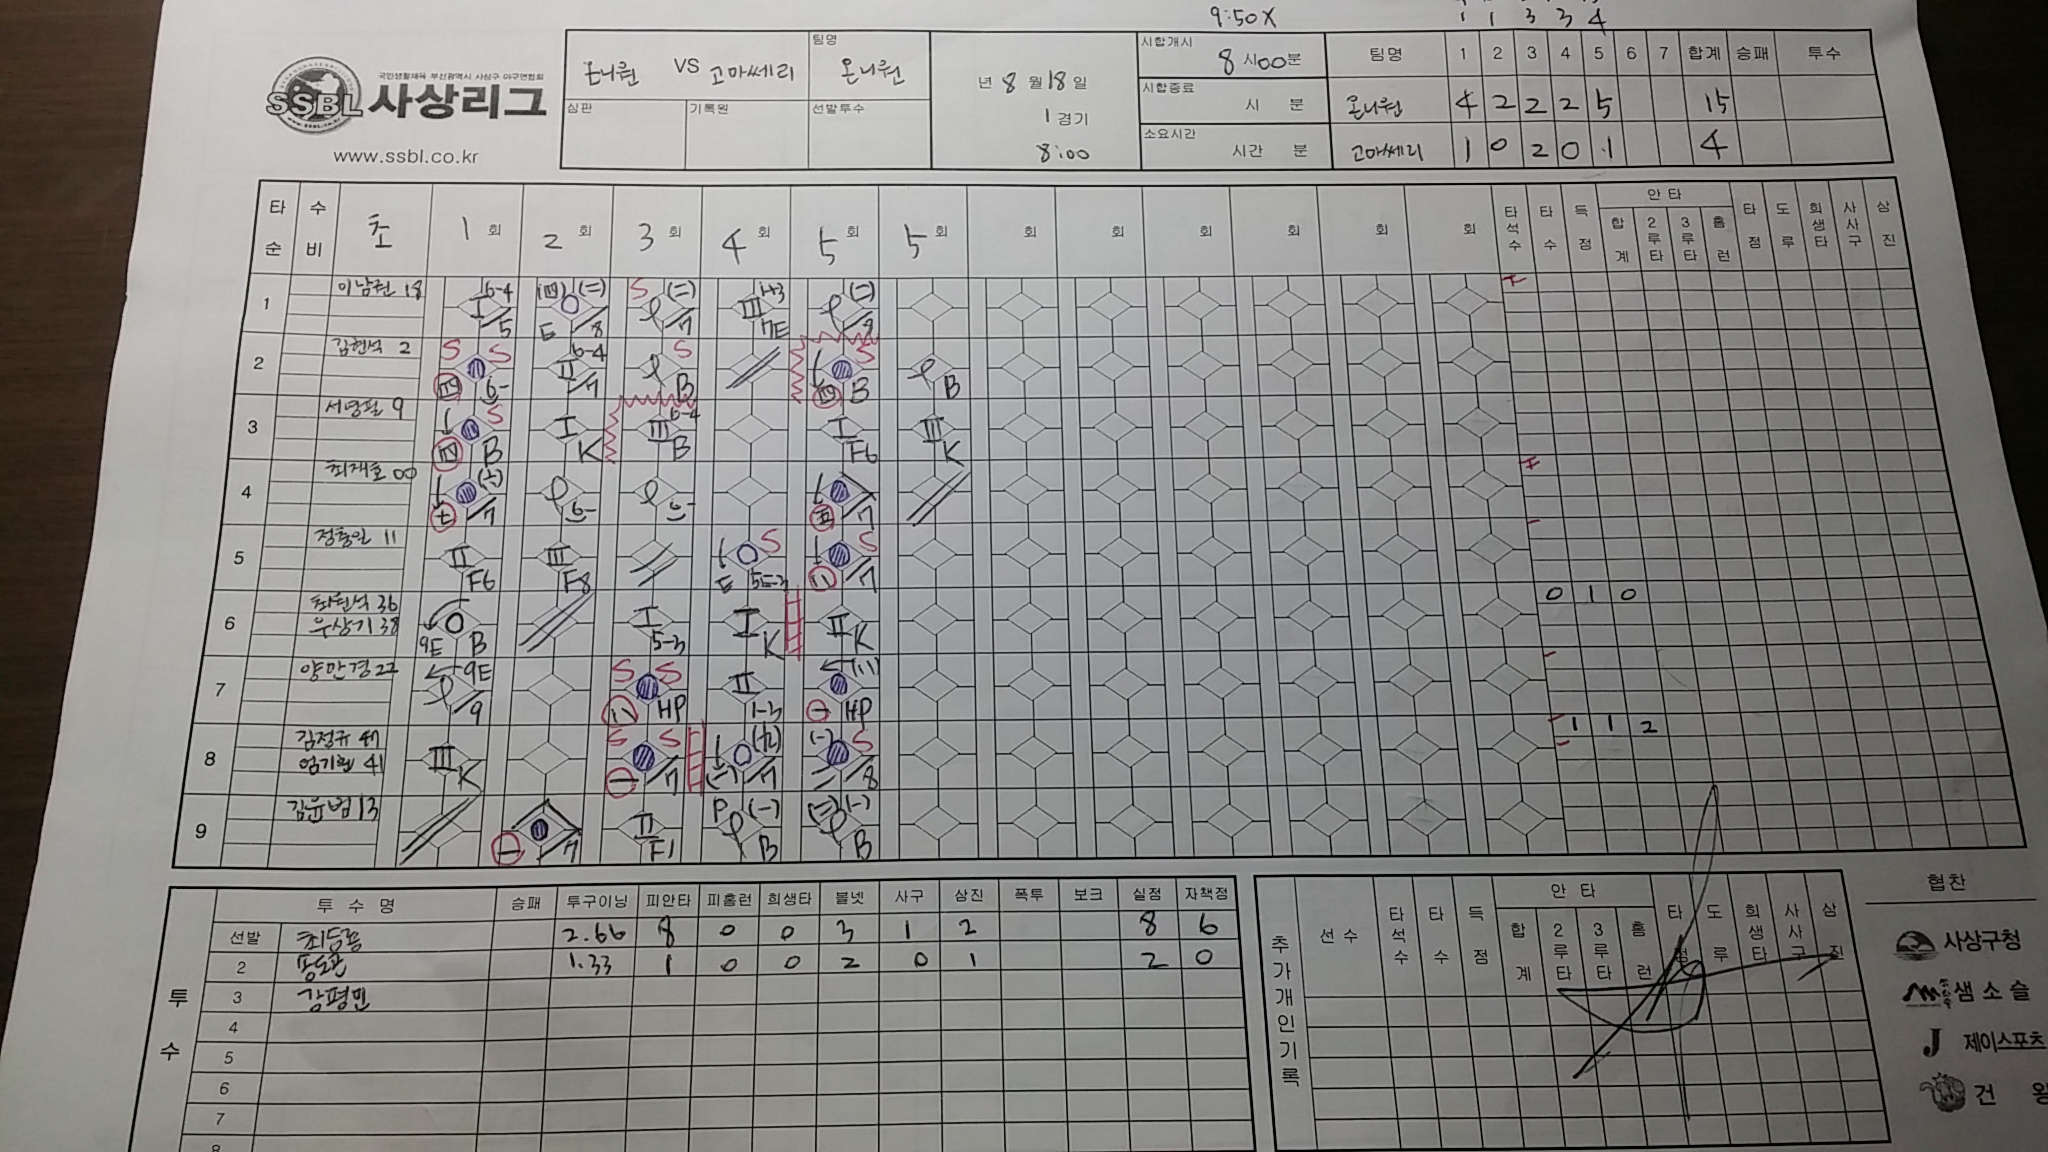 9:50X
1 1 3 3 4
국민생활체육 부산광역시 사상구 야구연합회
SSBL 사상리그
www.ssbl.co.kr
온니원 VS 고마쎄리
팀명
온니원
심판
기록원
선발투수
년 8 월 18 일
1 경기
8:00
시합개시
8 시 00 분
시합종료
시 분
소요시간
시간 분
팀명 1 2 3 4 5 6 7 합계 승패 투수
온니원 4 2 2 2 5 15
고마쎄리 1 0 2 0 1 4
타순 수비 초 1 회 2 회 3 회 4 회 5 회 5 회 회 회 회 회 회 회
타석수 타수 득점 안타 합계 2루타 3루타 홈런 타점 도루 희생타 사사구 삼진
1 이남권 18 I 6-4 5 E 8 S 7 III 7E 8
2 김현석 2 S S 6- II 6-4 7 S B S B B
3 서명필 9 S B I K III 6-4 B I F6 III K
4 최재호 00 7 6- 6- 7
5 정총일 11 II F6 III F8 S E 5E-3 S 7
6 최원석 36
우상기 38
9E B I 5-3 I K II K 0 1 0
7 양만경 22 9E 9 S S HP II 1-3 HP
8 김정규 47
엄기원 41
III K S S 7 7 S 8 1 1 2
9 김윤범 13 7 II F1 P B B
투수
투수명 승패 투구이닝 피안타 피홈런 희생타 볼넷 사구 삼진 폭투 보크 실점 자책점
선발 2.66 8 0 0 3 1 2 8 6
2 1.33 1 0 0 2 0 1 2 0
3 강평민
4
5
6
7
8
추가개인기록
선수 타석수 타수 득점 안타 합계 2루타 3루타 홈런 타점 도루 희생타 사사구 삼진
협찬
사상구청
샘소슬
J 제이스포츠
건 왕